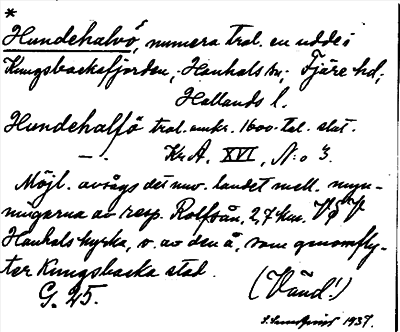 *
Hundehalvö, numera trol. en udde i
Kungsbackafjorden, Hanhals sn, Fjäre hd,
Hallands l.
Hundehalfö trol. omkr. 1600-tal. slut.
—.— Kr. A. XVI, N:o 3.
Möjl. avsågs det nuv. landet mell. myn-
ningarna av resp. Rolfsån, 2,7 km. V
Hanhals kyrka, o. av den å, som genomfly-
ter Kungsbacka stad.
G. 25. (Vänd!)
1937.